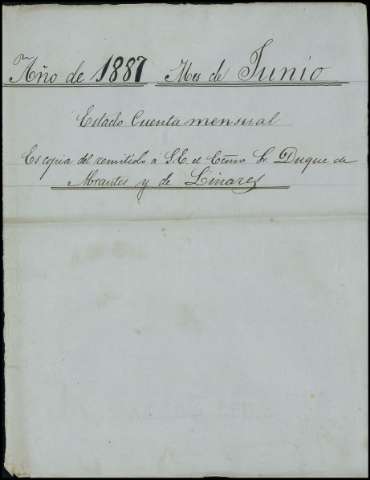 Año de 1887 Mes de Junio
Estado Cuenta mensual
Es copia del remitido a S.E. el Excmo Sr Duque de
Abrantes y de Linares